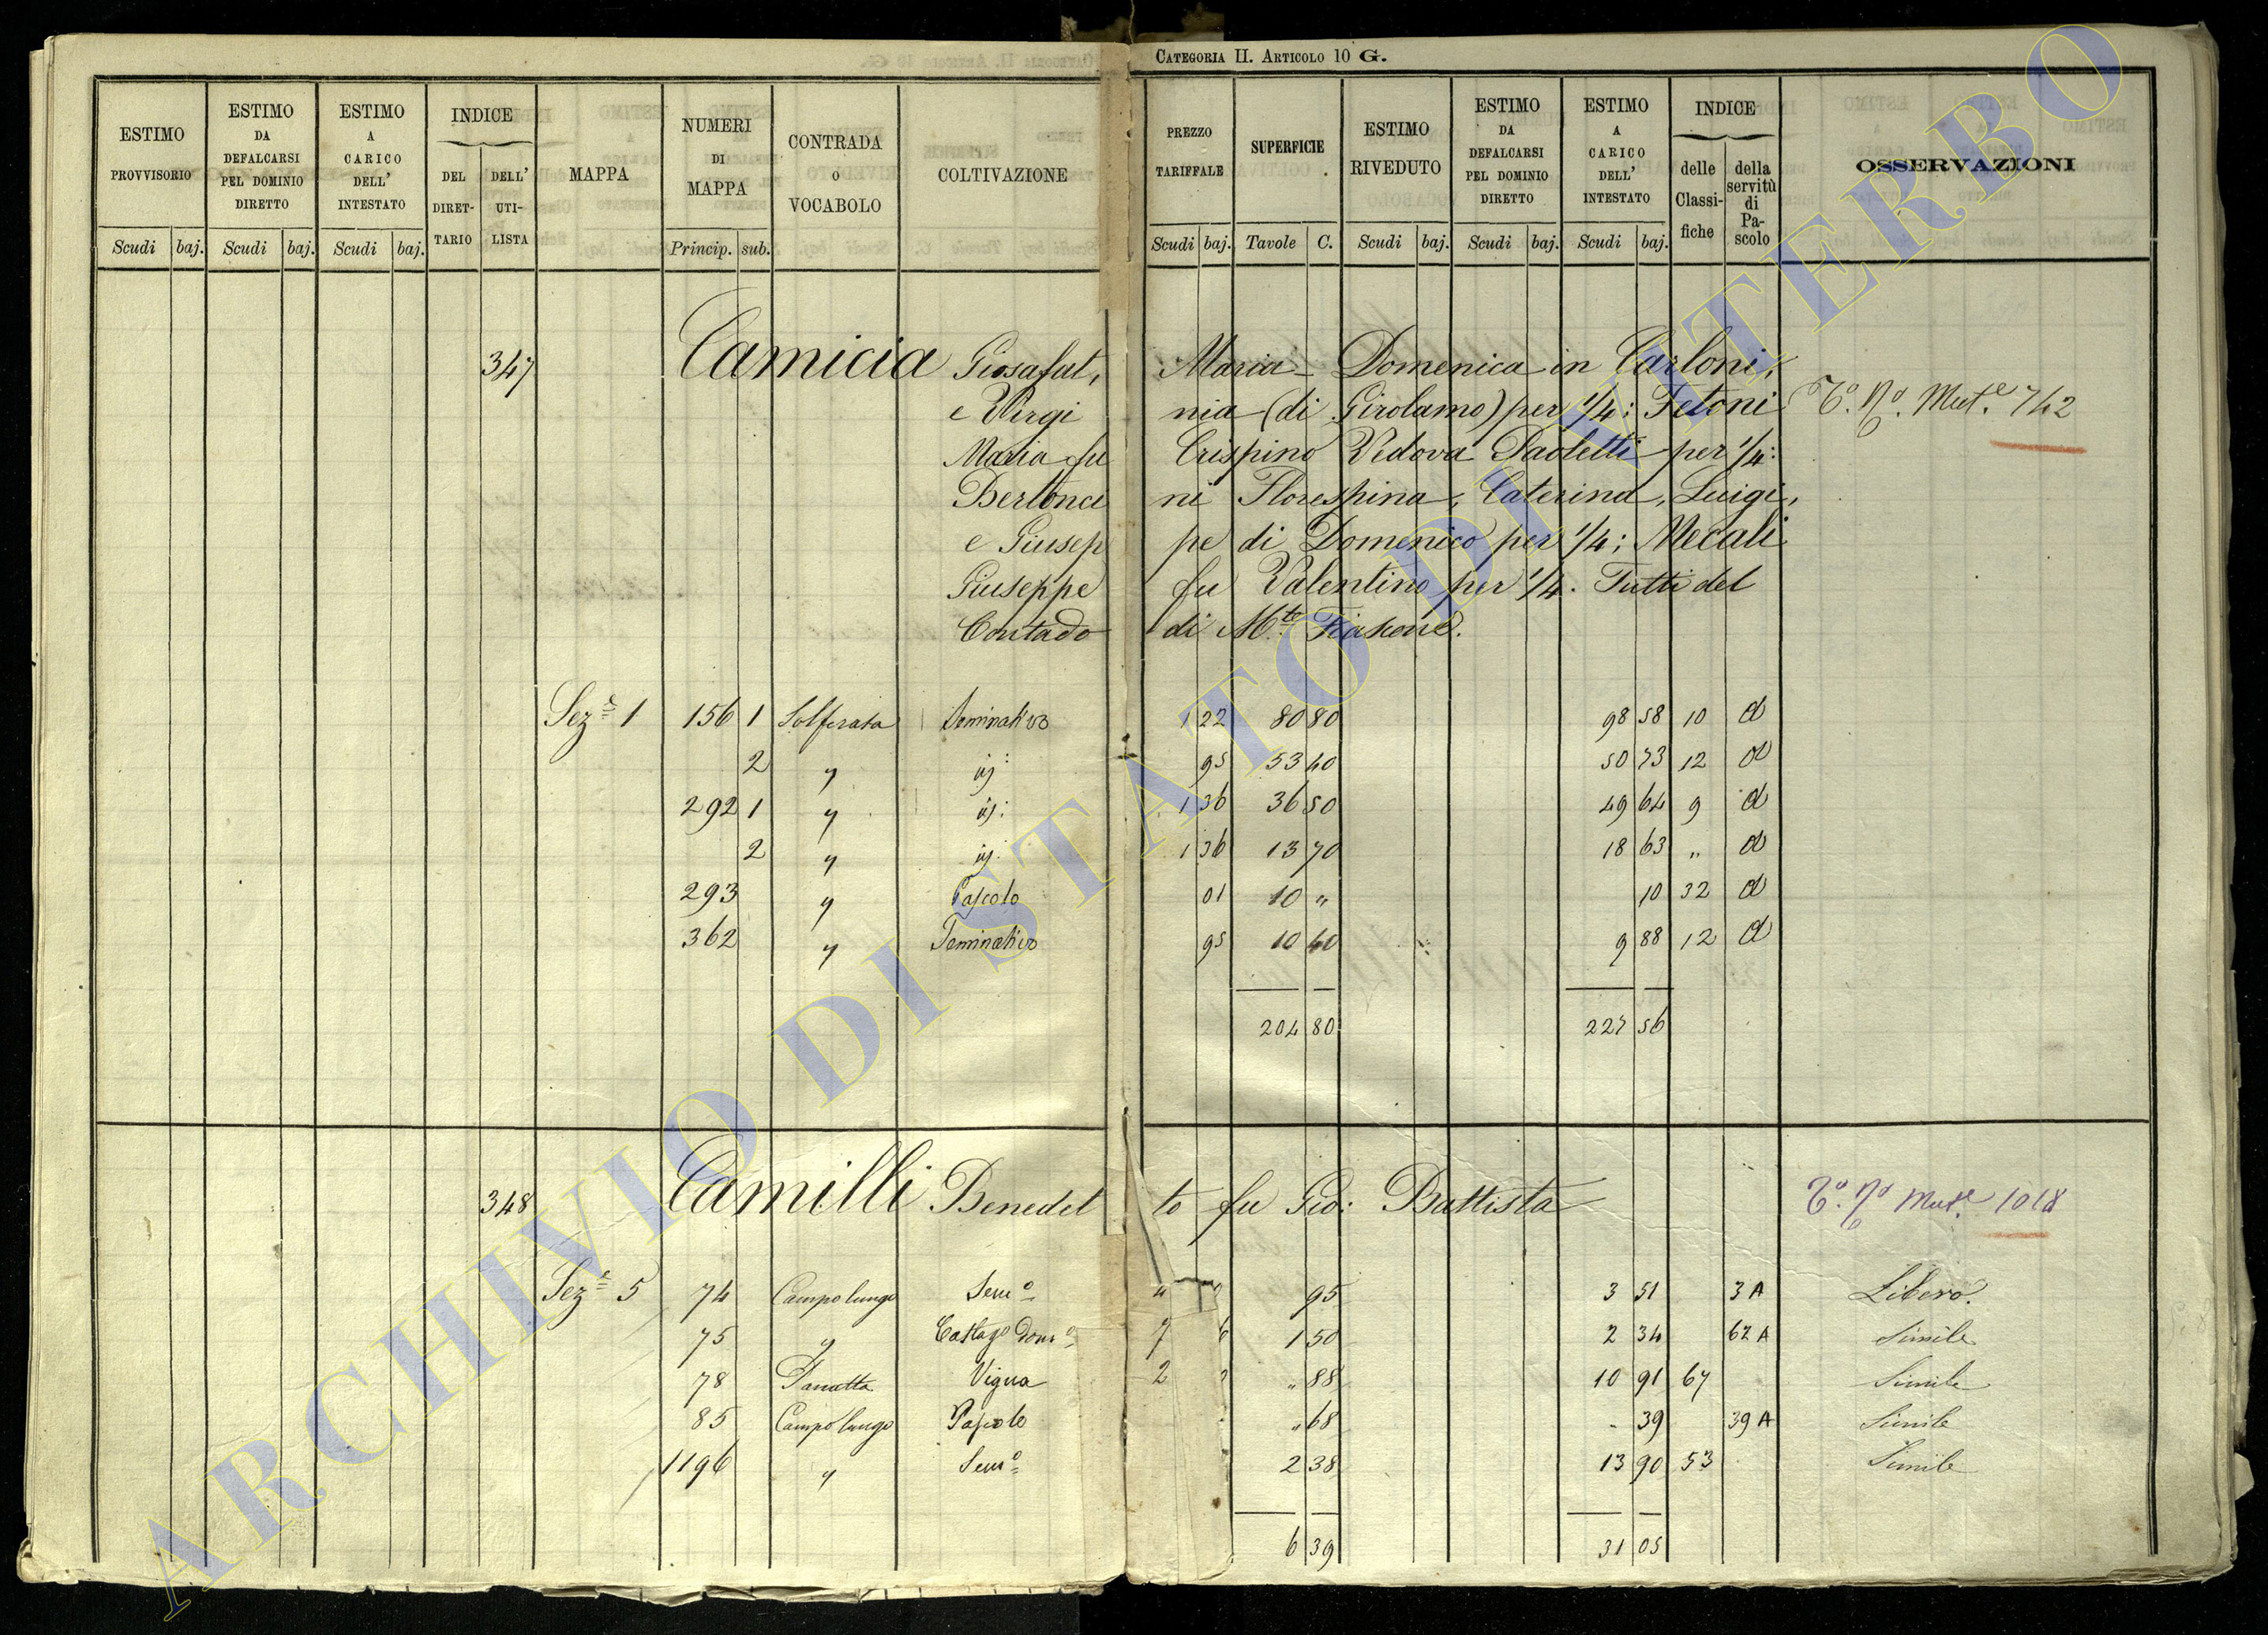 CATEGORIA II. ARTICOLO 10 G.
ESTIMO PROVVISORIO
ESTIMO DA DEFALCARSI PEL DOMINIO DIRETTO
ESTIMO A CARICO DELL' INTESTATO
INDICE
DEL DIRET-TARIO
DELL' UTI-LISTA
MAPPA
NUMERI DI MAPPA
CONTRADA O VOCABOLO
COLTIVAZIONE
PREZZO TARIFFALE
SUPERFICIE
ESTIMO RIVEDUTO
ESTIMO DA DEFALCARSI PEL DOMINIO DIRETTO
ESTIMO A CARICO DELL' INTESTATO
INDICE
delle Classi-fiche
della servitù di Pa-scolo
OSSERVAZIONI
Scudi baj. Scudi baj. Scudi baj. Princip. sub. Scudi baj. Tavole C. Scudi baj. Scudi baj. Scudi baj.
347 Camicia Giosafat, Maria Domenica in Carloni,
e Virgi nia (di Girolamo) per 1/4: Fetoni Mut.e 742
Maria fu Crispino Vedova Paoletti per 1/4:
Bertonci ni Florespina, Caterina, Luigi,
e Giusep pe di Domenico per 1/4; Mecali
Giuseppe fu Valentino per 1/4. Tutti del
Contado di M.te Fiascone.
Sez.e 1 156 1 Solferata Seminativo 1 22 80 80 98 58 10 a
2 " id: 95 53 40 50 73 12 a
292 1 " id: 1 36 36 50 49 64 9 a
2 " id: 1 36 13 70 18 63 " a
293 " Pascolo 01 10 " 10 32 a
362 " Seminativo 95 10 40 9 88 12 a
204 80 227 56
348 Camilli Benedet to fu Gio: Battista Mut.e 1018
Sez.e 5 74 Campo lungo Sem.o 95 3 51 3 A Libero.
75 " 1 50 2 34 62 A Simile
78 Vigna " 88 10 91 67 Simile
85 Campo lungo Pascolo " 68 - 39 39 A Simile
1196 " Sem.o 2 38 13 90 53 Simile
6 39 31 05
ARCHIVIO DI STATO DI VITERBO